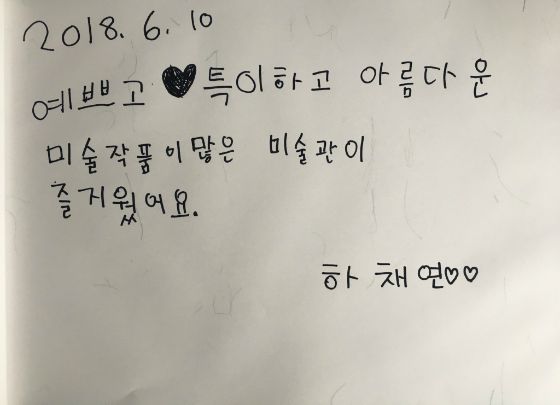 2018. 6. 10
예쁘고 ♥특이하고 아름다운
미술작품이많은 미술관이
즐거웠어요.
하채연♡♡